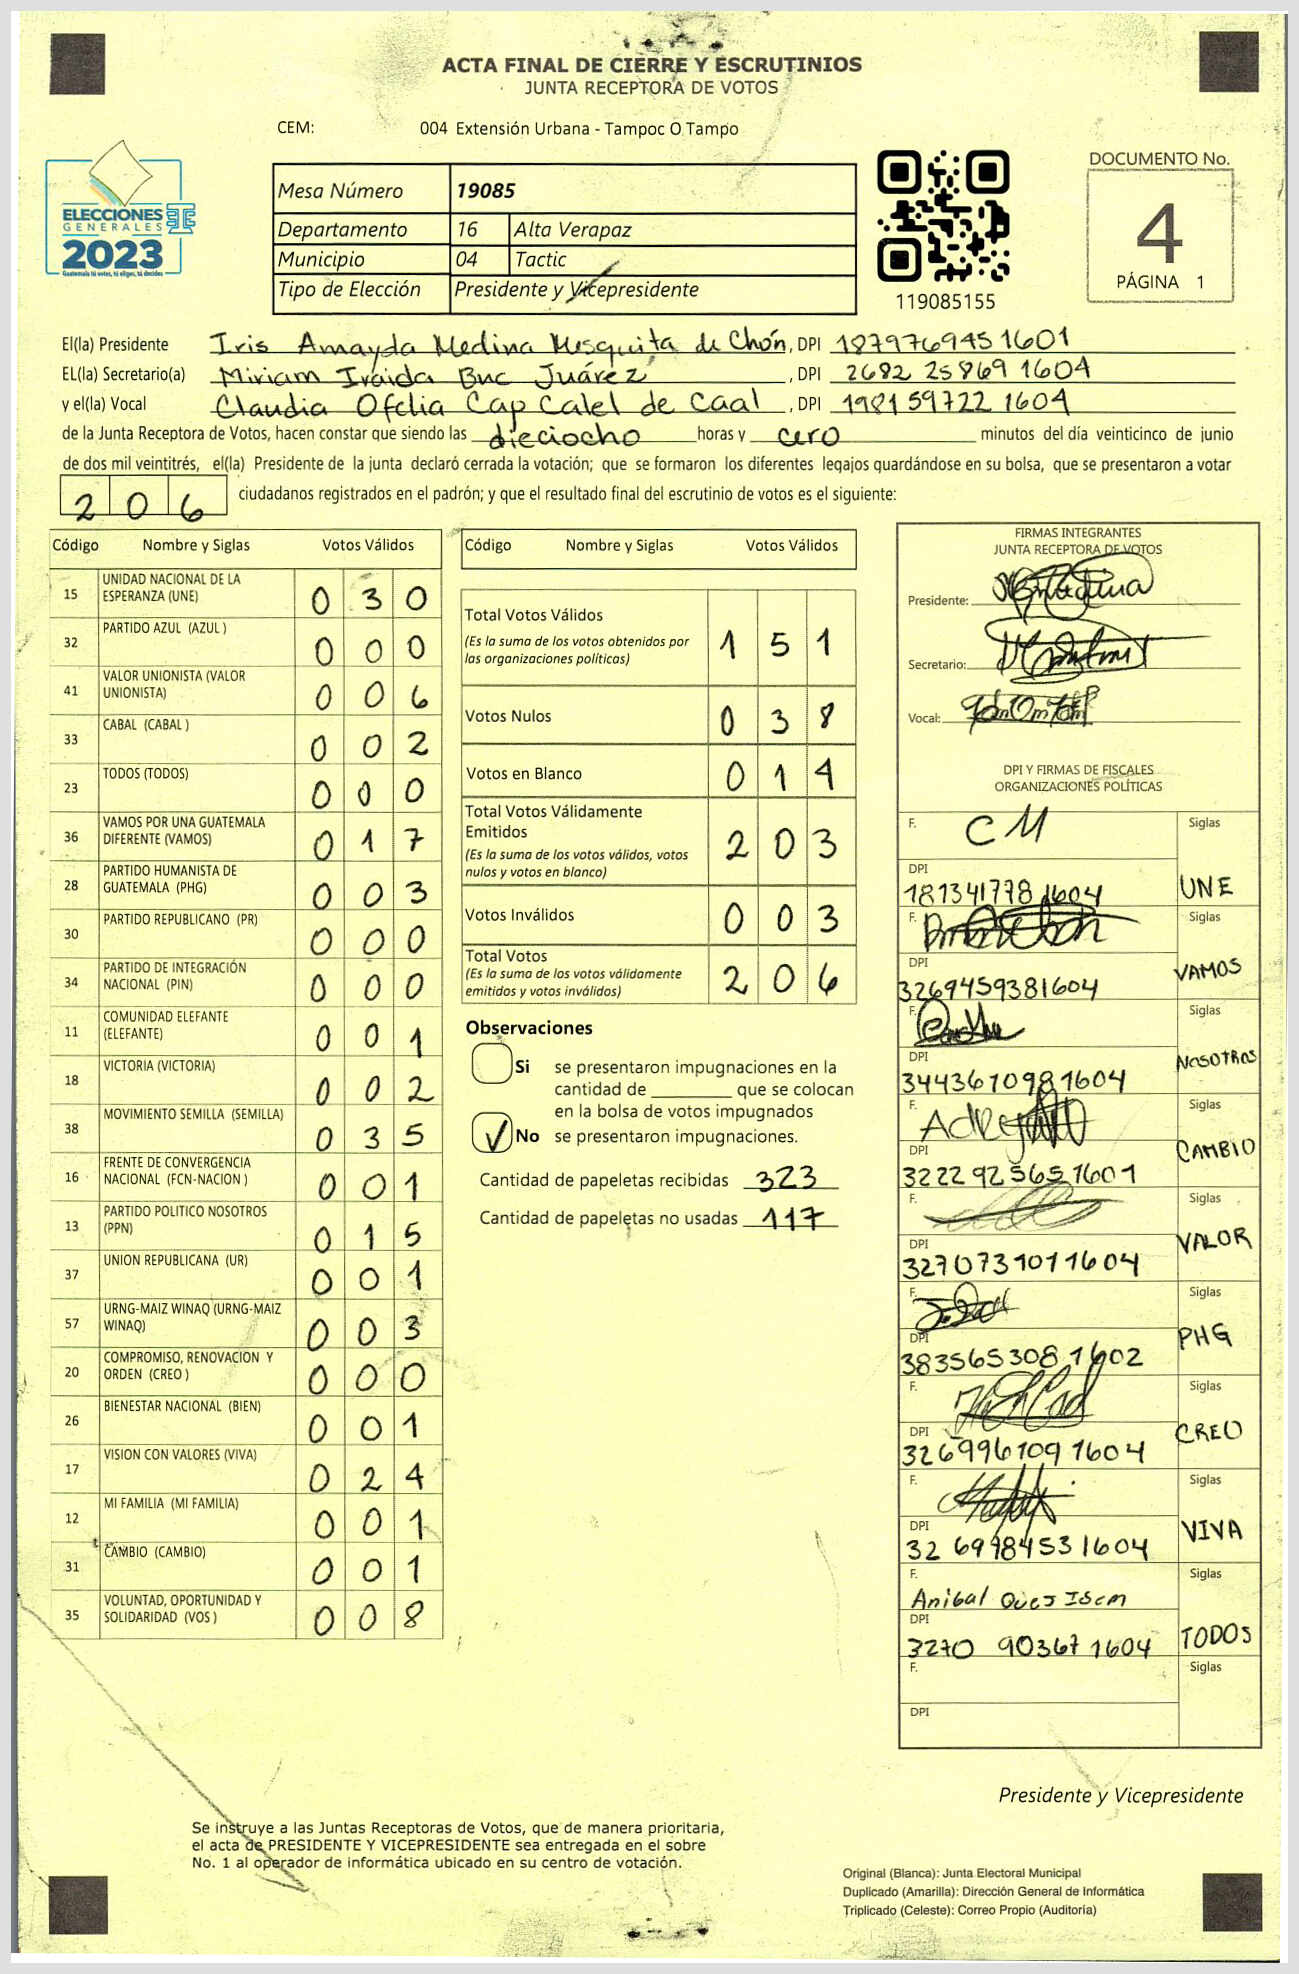 ACTA FINAL DE CIERRE Y ESCRUTINIOS
JUNTA RECEPTORA DE VOTOS
CEM: 004 Extensión Urbana - Tampoc O Tampo
ELECCIONES
GENERALES
2023
Guatemala tú votas, tú eliges, tú decides
Mesa Número 19085
Departamento 16 Alta Verapaz
Municipio 04 Tactic
Tipo de Elección Presidente y Vicepresidente
119085155
DOCUMENTO No.
4
PÁGINA 1
El(la) Presidente Iris Amayda Medina Mesquita de Chón, DPI 1879769451601
EL(la) Secretario(a) Miriam Iraida Buc Juárez, DPI 2682 25869 1604
y el(la) Vocal Claudia Ofelia Cap Calel de Caal, DPI 198159722 1604
de la Junta Receptora de Votos, hacen constar que siendo las dieciocho horas y cero minutos del día veinticinco de junio
de dos mil veintitrés, el(la) Presidente de la junta declaró cerrada la votación; que se formaron los diferentes legajos guardándose en su bolsa, que se presentaron a votar
206 ciudadanos registrados en el padrón; y que el resultado final del escrutinio de votos es el siguiente:
Código Nombre y Siglas Votos Válidos
15 UNIDAD NACIONAL DE LA ESPERANZA (UNE) 0 3 0
32 PARTIDO AZUL (AZUL ) 0 0 0
41 VALOR UNIONISTA (VALOR UNIONISTA) 0 0 6
33 CABAL (CABAL ) 0 0 2
23 TODOS (TODOS) 0 0 0
36 VAMOS POR UNA GUATEMALA DIFERENTE (VAMOS) 0 1 7
28 PARTIDO HUMANISTA DE GUATEMALA (PHG) 0 0 3
30 PARTIDO REPUBLICANO (PR) 0 0 0
34 PARTIDO DE INTEGRACIÓN NACIONAL (PIN) 0 0 0
11 COMUNIDAD ELEFANTE (ELEFANTE) 0 0 1
18 VICTORIA (VICTORIA) 0 0 2
38 MOVIMIENTO SEMILLA (SEMILLA) 0 3 5
16 FRENTE DE CONVERGENCIA NACIONAL (FCN-NACION ) 0 0 1
13 PARTIDO POLITICO NOSOTROS (PPN) 0 1 5
37 UNION REPUBLICANA (UR) 0 0 1
57 URNG-MAIZ WINAQ (URNG-MAIZ WINAQ) 0 0 3
20 COMPROMISO, RENOVACION Y ORDEN (CREO ) 0 0 0
26 BIENESTAR NACIONAL (BIEN) 0 0 1
17 VISION CON VALORES (VIVA) 0 2 4
12 MI FAMILIA (MI FAMILIA) 0 0 1
31 CAMBIO (CAMBIO) 0 0 1
35 VOLUNTAD, OPORTUNIDAD Y SOLIDARIDAD (VOS ) 0 0 8
Código Nombre y Siglas Votos Válidos
Total Votos Válidos 1 5 1
(Es la suma de los votos obtenidos por
las organizaciones políticas)
Votos Nulos 0 3 8
Votos en Blanco 0 1 4
Total Votos Válidamente
Emitidos 2 0 3
(Es la suma de los votos válidos, votos
nulos y votos en blanco)
Votos Inválidos 0 0 3
Total Votos 2 0 6
(Es la suma de los votos válidamente
emitidos y votos inválidos)
Observaciones
Si se presentaron impugnaciones en la
cantidad de ________ que se colocan
en la bolsa de votos impugnados
No se presentaron impugnaciones.
Cantidad de papeletas recibidas 323
Cantidad de papeletas no usadas 117
FIRMAS INTEGRANTES
JUNTA RECEPTORA DE VOTOS
Presidente:
Secretario:
Vocal:
DPI Y FIRMAS DE FISCALES
ORGANIZACIONES POLÍTICAS
F. CM Siglas
DPI 181341778 1604 UNE
F. Siglas
DPI 3269459381604 VAMOS
F. Siglas
DPI 3443610981604 NOSOTROS
F. Siglas
DPI 3222 925651601 CAMBIO
F. Siglas
DPI 3270731011604 VALOR
F. Siglas
DPI 383565308 1602 PHG
F. Siglas
DPI 326996109 1604 CREO
F. Siglas
DPI 32 6998453 1604 VIVA
F. Anibal Siglas
DPI 3270 90367 1604 TODOS
F. Siglas
DPI
Presidente y Vicepresidente
Se instruye a las Juntas Receptoras de Votos, que de manera prioritaria,
el acta de PRESIDENTE Y VICEPRESIDENTE sea entregada en el sobre
No. 1 al operador de informática ubicado en su centro de votación.
Original (Blanca): Junta Electoral Municipal
Duplicado (Amarilla): Dirección General de Informática
Triplicado (Celeste): Correo Propio (Auditoría)